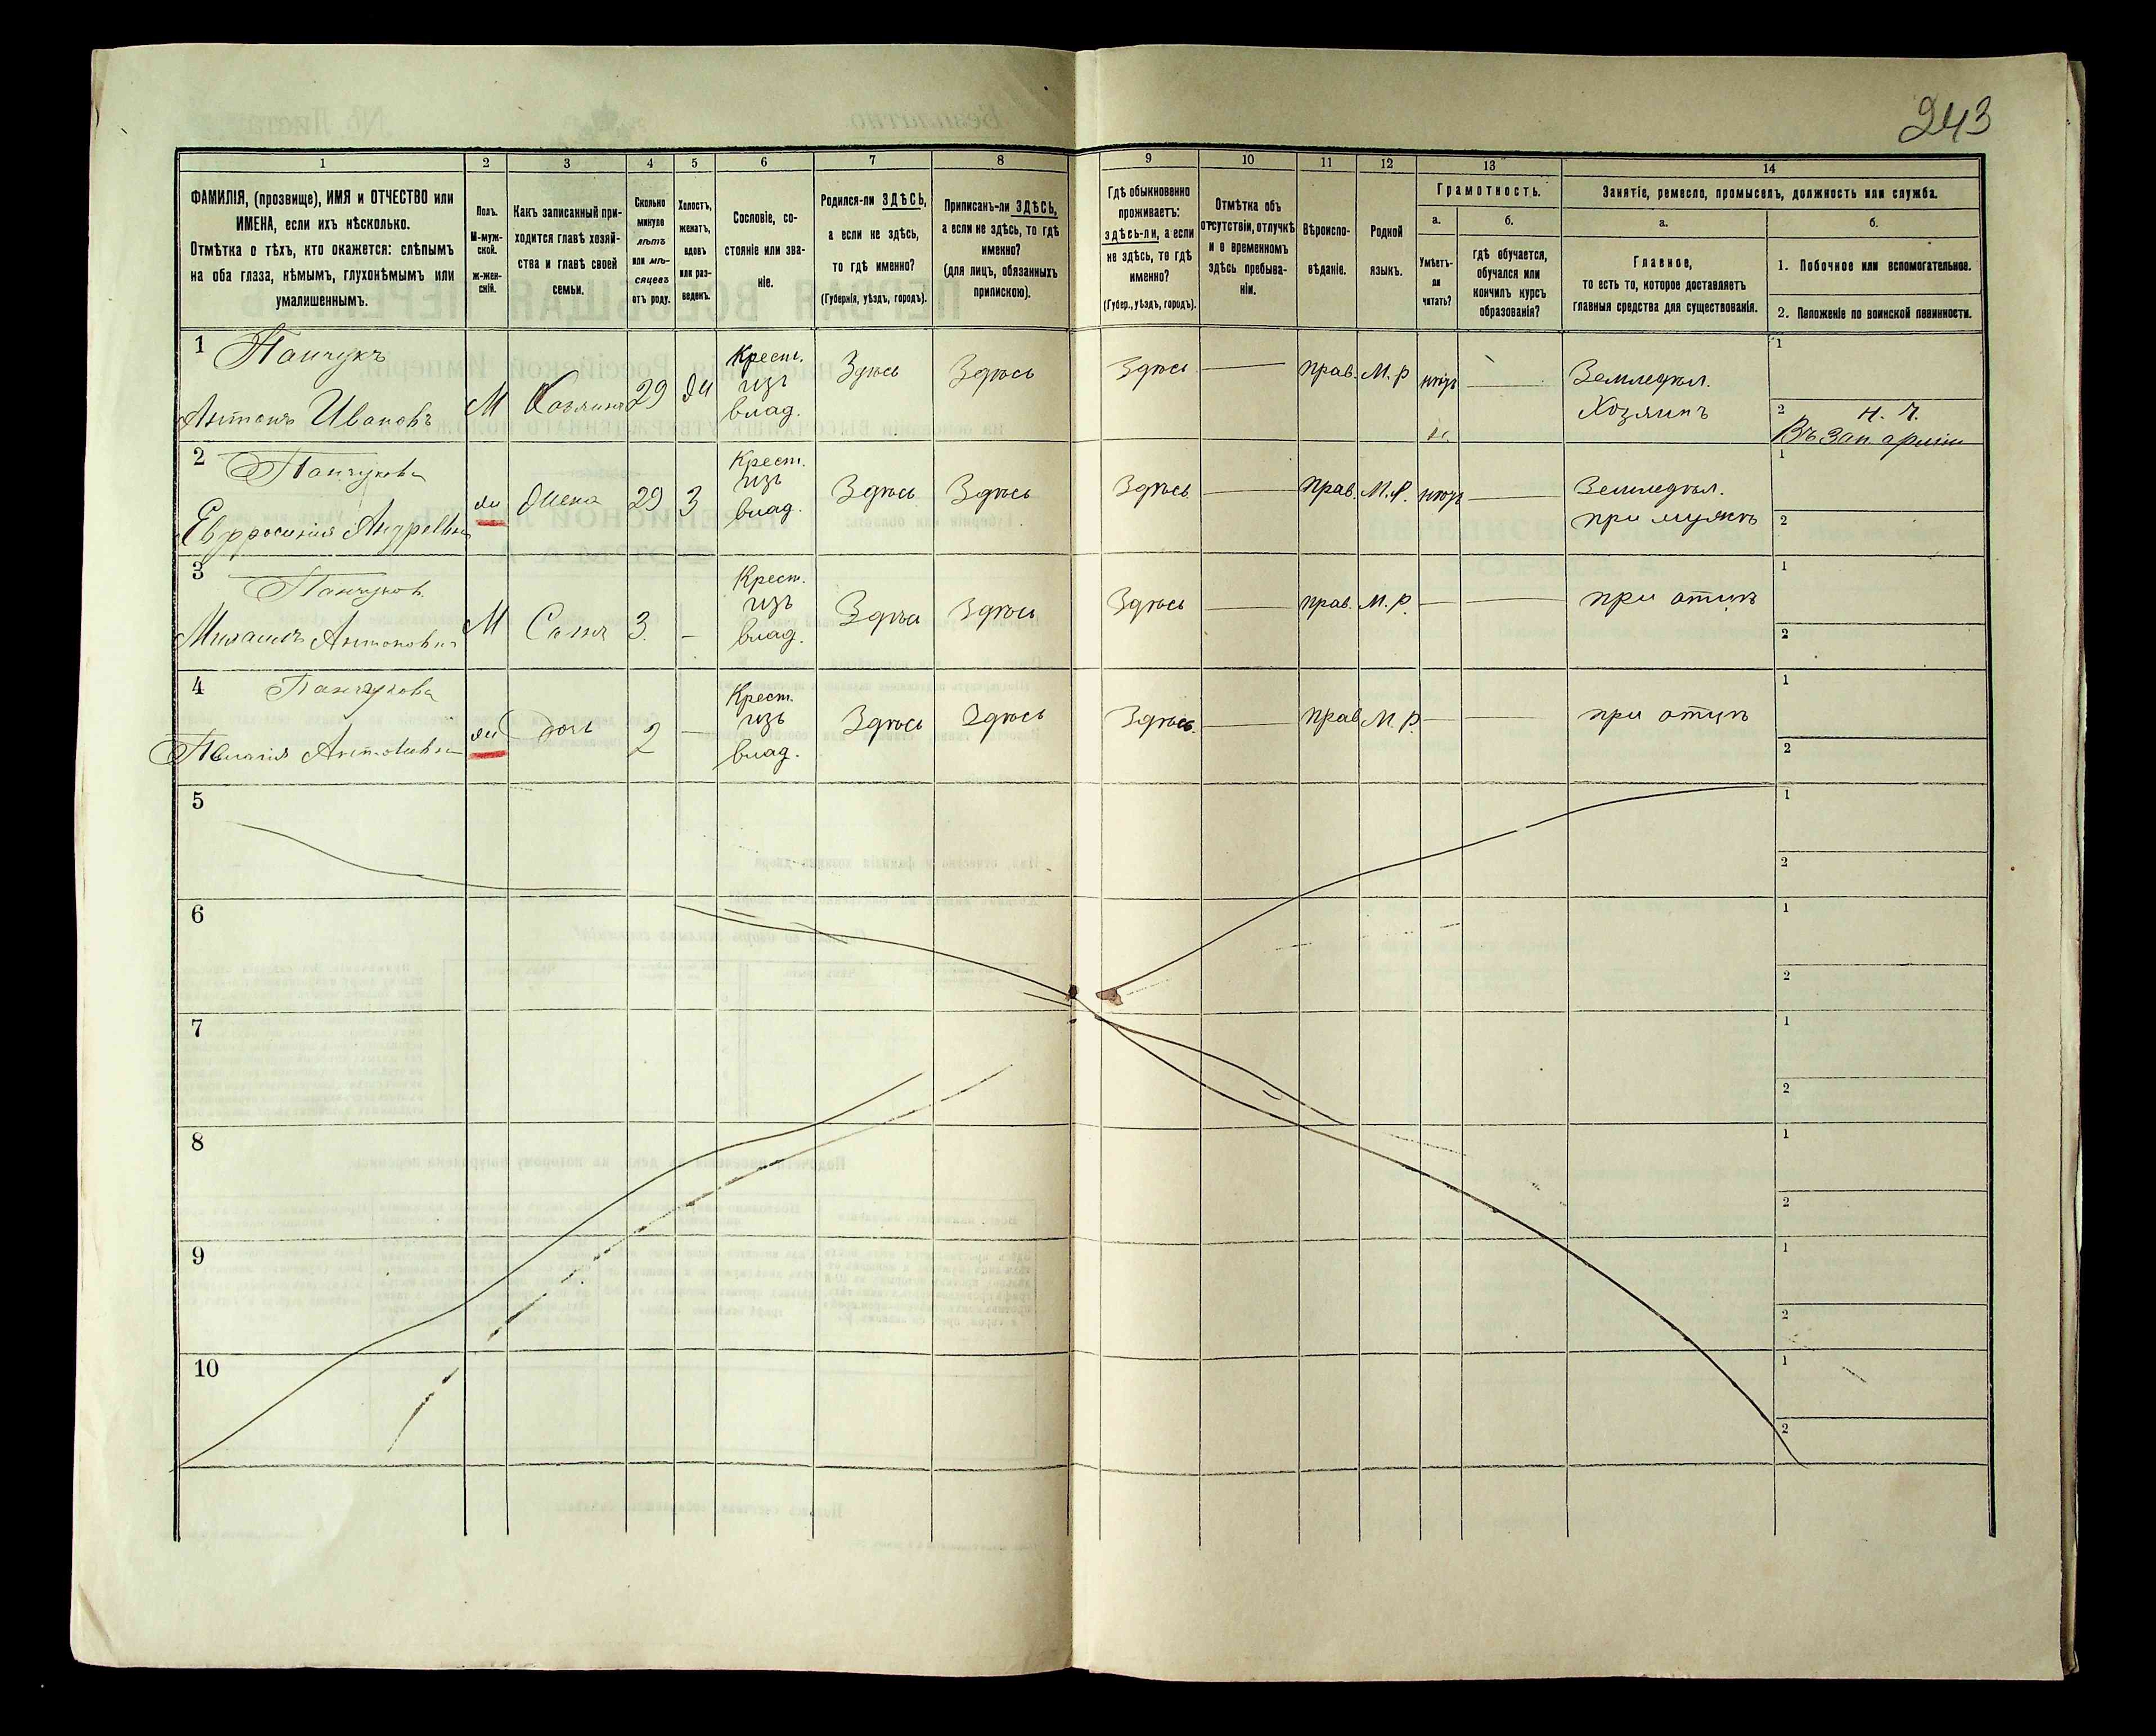 243
1 2 3 4 5 6 7 8 9 10 11 12 13 14
ФАМИЛІЯ, (прозвище), ИМЯ и ОТЧЕСТВО или
ИМЕНА, если ихъ нѣсколько.
Отмѣтка о тѣхъ, кто окажется: слѣпымъ
на оба глаза, нѣмымъ, глухонѣмымъ или
умалишеннымъ.
Полъ.
М-муж-
ской.
Ж-жен-
скій.
Какъ записанный при-
ходится главѣ хозяй-
ства и главѣ своей
семьи.
Сколько
минуло
лѣтъ
или мѣ-
сяцевъ
отъ роду.
Холостъ,
женатъ,
вдовъ
или раз-
веденъ.
Сословіе, со-
стояніе или зва-
ніе.
Родился-ли ЗДѢСЬ,
а если не здѣсь,
то гдѣ именно?
(Губернія, уѣздъ, городъ).
Приписанъ-ли ЗДѢСЬ,
а если не здѣсь, то гдѣ
именно?
(для лицъ, обязанныхъ
припискою).
Гдѣ обыкновенно
проживаетъ:
здѣсь-ли, а если
не здѣсь, то гдѣ
именно?
(Губер., уѣздъ, городъ).
Отмѣтка объ
отсутствіи, отлучкѣ
и о временномъ
здѣсь пребыва-
ніи.
Вѣроиспо-
вѣданіе.
Родной
языкъ.
Грамотность.
а.
Умѣетъ-
ли
читать?
б.
гдѣ обучается,
обучался или
кончилъ курсъ
образованія?
Занятіе, ремесло, промыселъ, должность или служба.
а.
Главное,
то есть то, которое доставляетъ
главныя средства для существованія.
б.
1. Побочное или вспомогательное.
2. Положеніе по воинской повинности.
1 Панчукъ
Антонъ Ивановъ
М
Хозяинъ
29
Ж
Крест.
изъ
влад.
Здѣсь
Здѣсь
Здѣсь
Прав.
М.р
нѣтъ
Земледѣл.
Хозяинъ
1
2 н. ч.
Въ зап арміи
2 Панчукова
Евфросинія Андреевна
Ж
Жена
29
З
Крест.
изъ
влад.
Здѣсь
Здѣсь
Здѣсь
Прав.
М.р.
нѣтъ
Земледѣл.
при мужѣ
1
2
3 Панчуков
Михаилъ Антоновичъ
М
Сынъ
3.
Крест.
изъ
влад.
Здѣсь
Здѣсь
Здѣсь
прав.
М.р.
при отцѣ
1
2
4 Панчукова
Пелагія Антоновна
Ж
дочь
2
Крест.
изъ
влад.
Здѣсь
Здѣсь
Здѣсь
Прав
М.р
при отцѣ
1
2
5
1
2
6
1
2
7
1
2
8
1
2
9
1
2
10
1
2